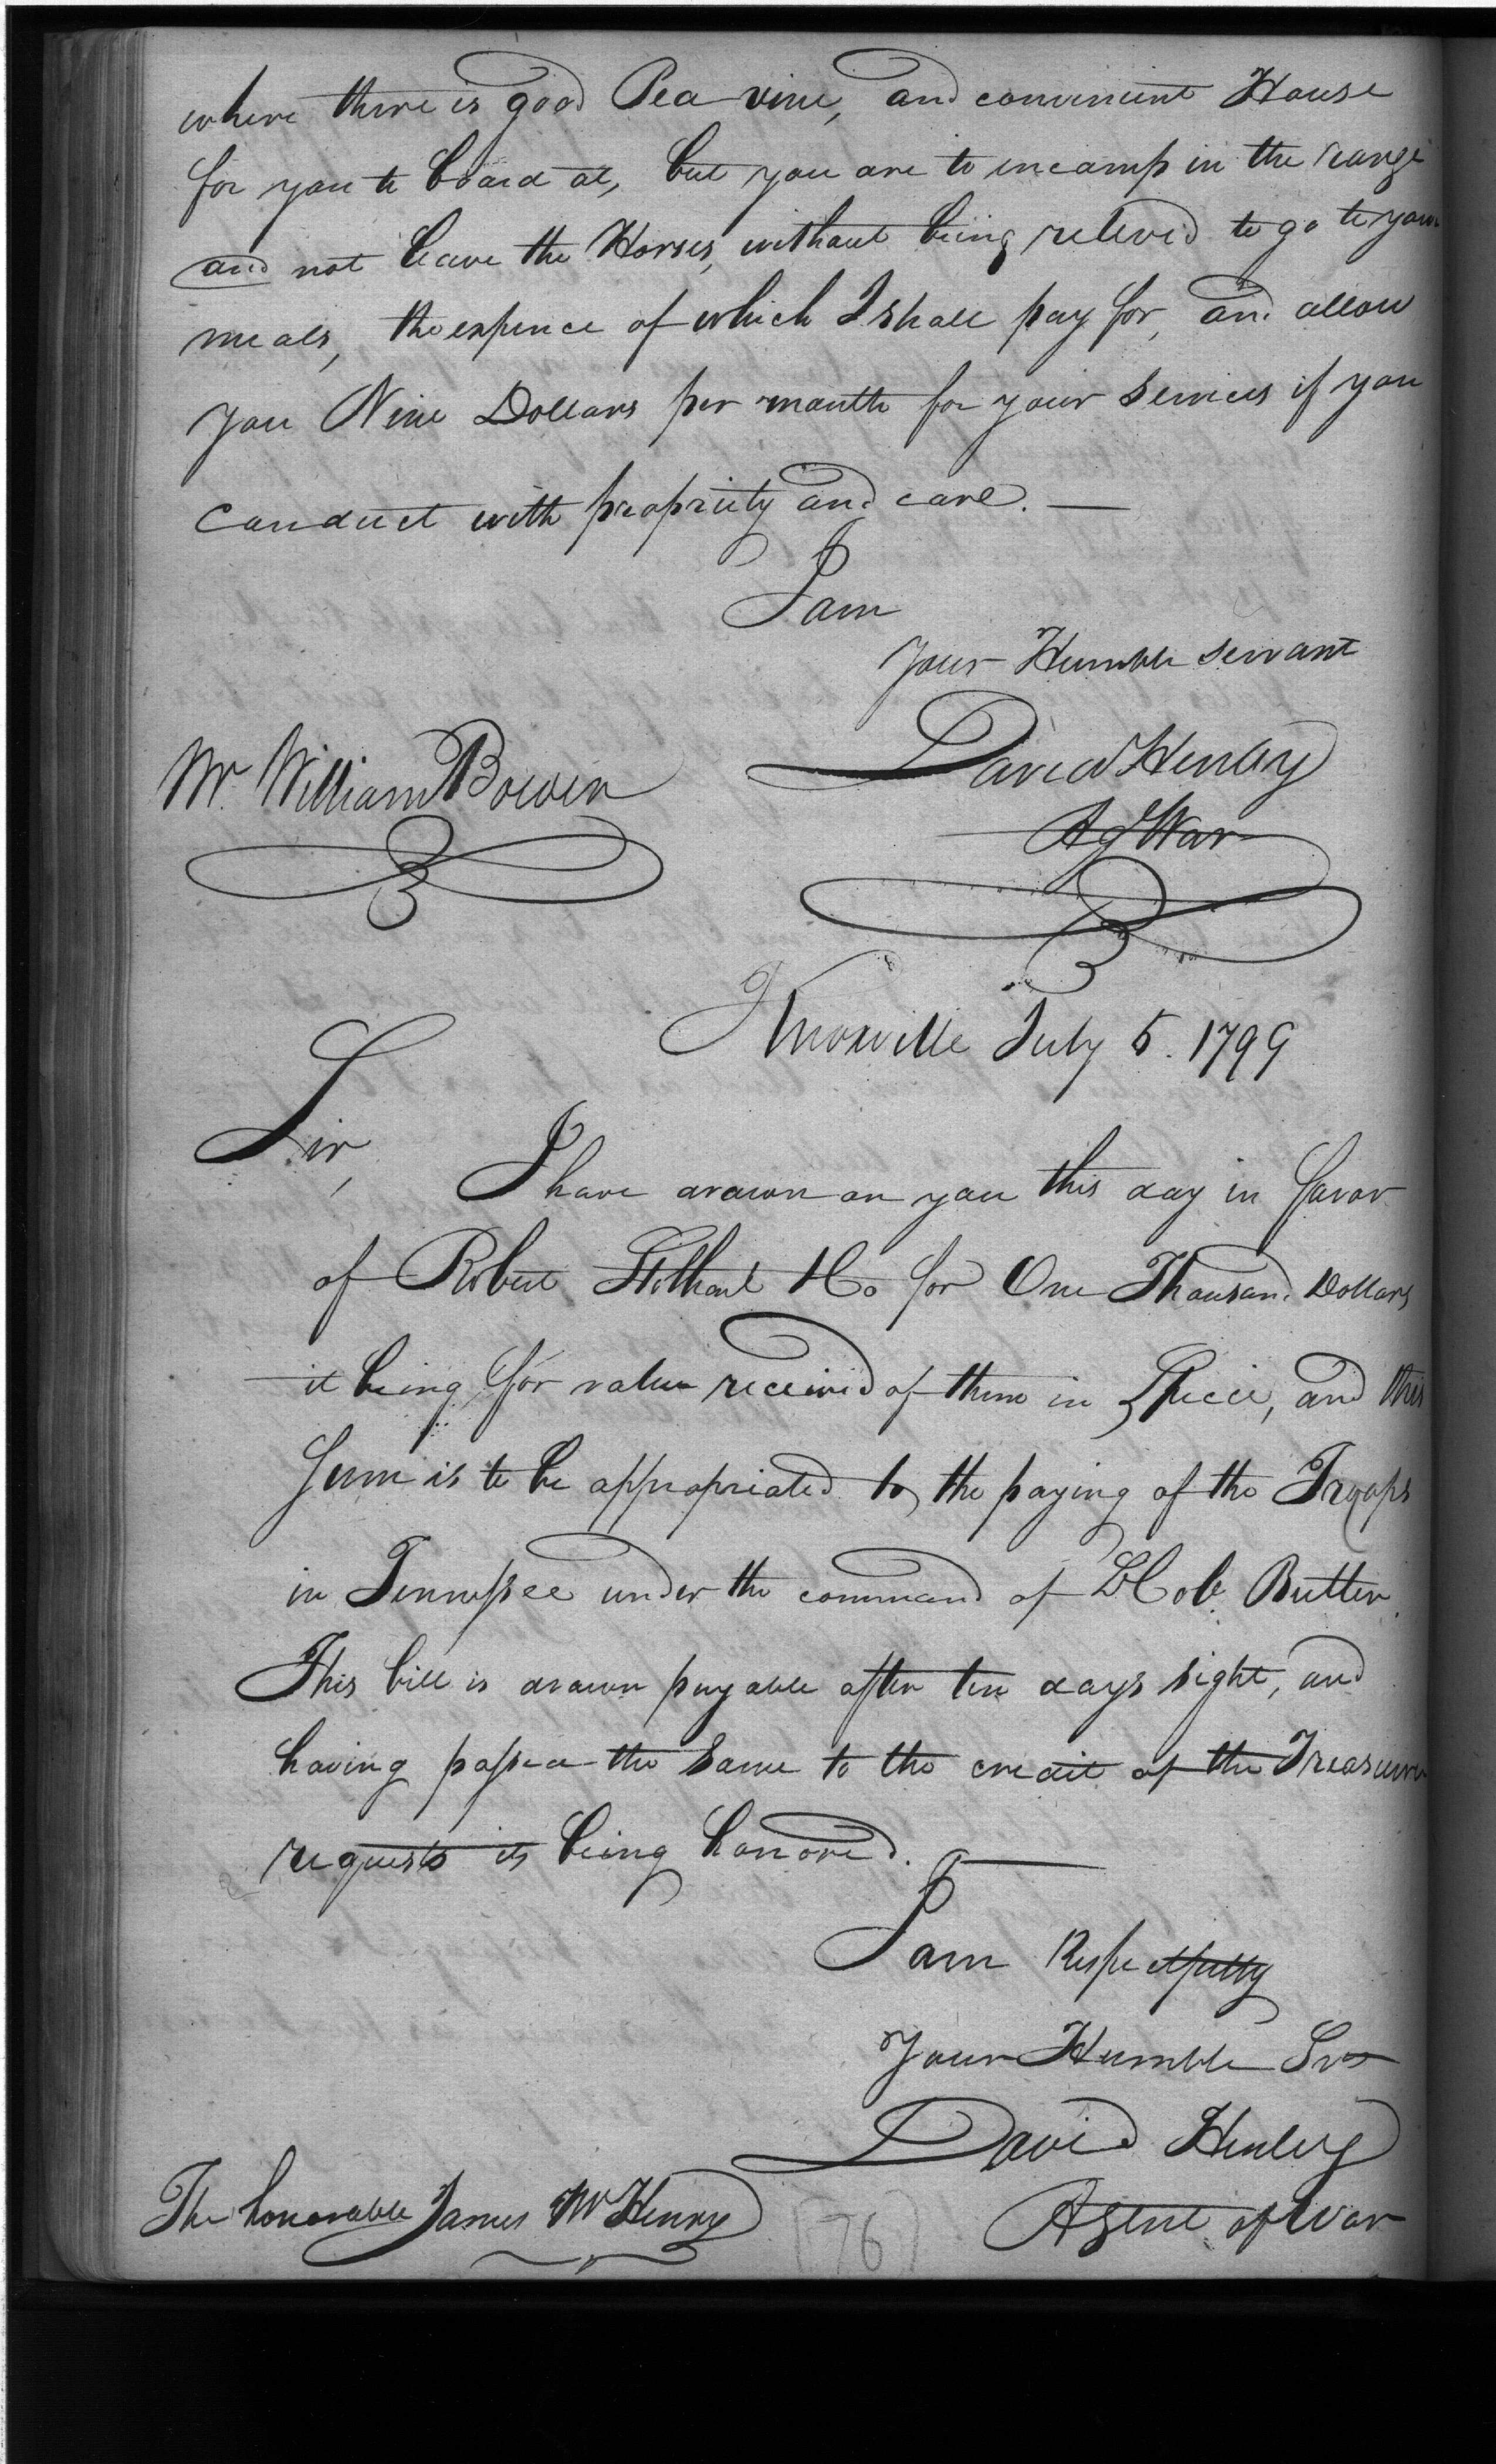 where there is good Pea vine, and convenient House
for you to board at, but you are to encamp in the range
and not leave the Horses, without being releved to go to your
meals, the expence of which I shall pay for, and allow
you Nine Dollars per month for your services if you
conduct with propriety and care. —
I am
Your Humble servant
David Henley
Ag War
Mr. William Bowen
Knoxville July 5. 1799
Sir,
I have drawn on you this day in favor
of Robert & Co for One Thousand Dollars
it being for value received of them in Specie, and this
Sum is to be appropriated to the paying of the Troops
in Tennessee under the command of Lt Col. Butler.
This bill is drawn payable after ten days sight, and
having passed the same to the credit of the Treasurer
requests its being honored. —
I am Respectfully
Your Humble Svt
David Henley
Agent of War
The honorable James McHenry
(76)